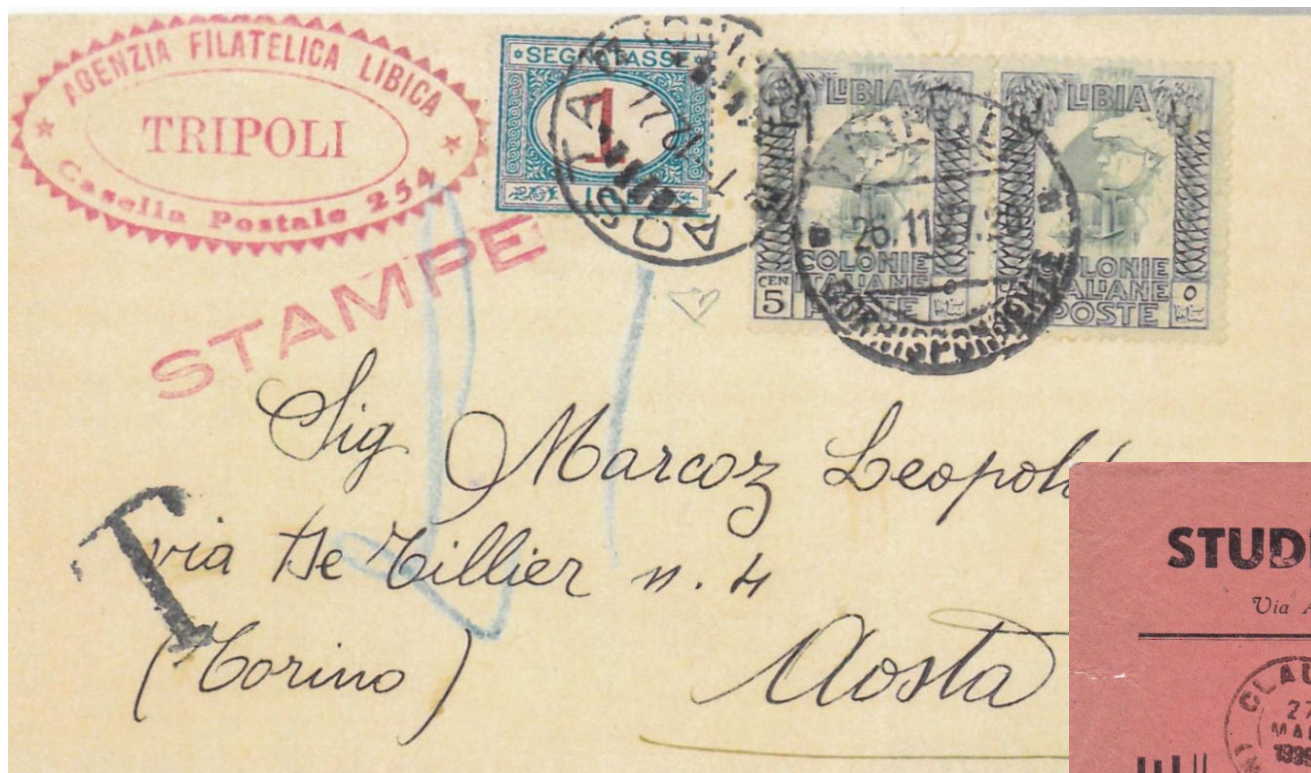 AGENZIA FILATELICA LIBICA
TRIPOLI
Casella Postale 254
STAMPE
SEGNATASSE
1
AOSTA
LIBIA
CEN 5
COLONIE
ITALIANE
POSTE
LIBIA
COLONIE
ITALIANE
POSTE
26.11
CORRISPONDENZE
T
Sig Marcoz Leopold
via De Tillier n. 4
(Torino) Aosta
STUDI
Via A
CLAU
27
MAR